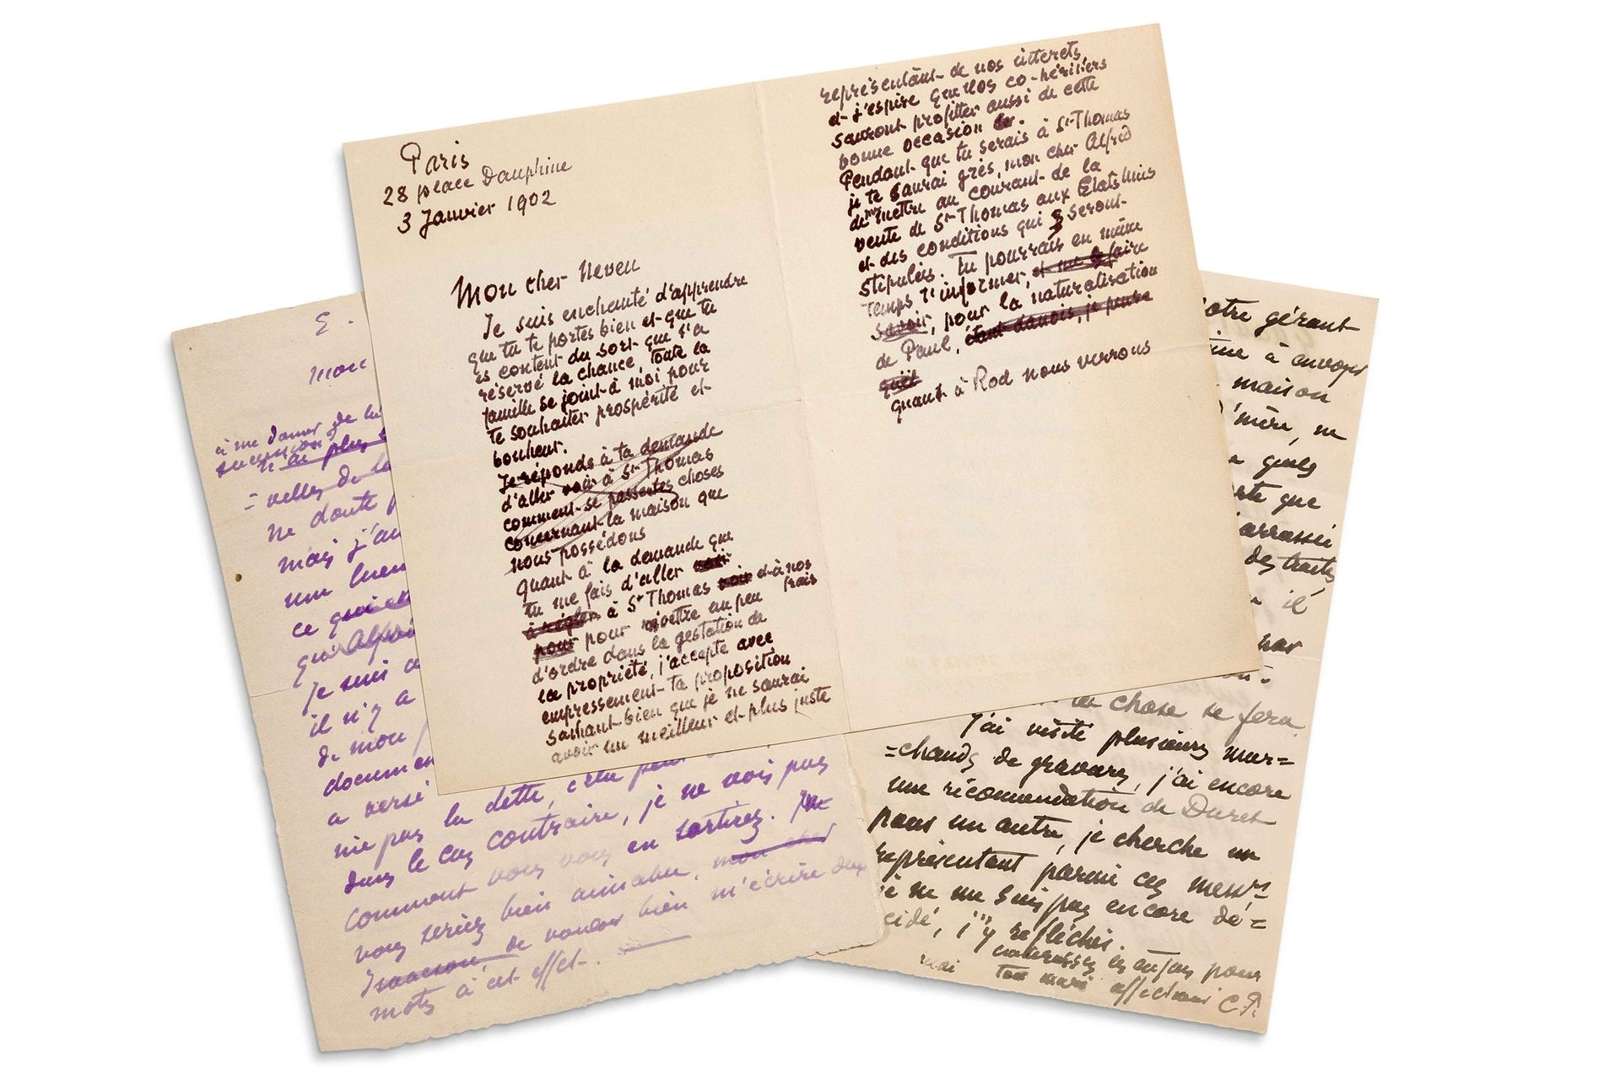 Paris
28 place Dauphine
3 Janvier 1902
Mon cher Neveu
Je suis enchanté d'apprendre
que tu te portes bien et que tu
es content du sort que t'a
réservé la chance, toute la
famille se joint à moi pour
te souhaiter prospérité et
bonheur.
Je réponds à ta demande
d'aller voir à St Thomas
comment se passent les choses
concernant la maison que
nous possédons
quant à la demande que
tu me fais d'aller
à régler à St Thomas voir et à nos frais
pour pour mettre un peu
d'ordre dans la gestion de
la propriété, j'accepte avec
empressement ta proposition
sachant bien que je ne saurai
avoir un meilleur et plus juste
représentant de nos interets
et j'espère que nos co-héritiers
sauront profitter aussi de cette
bonne occasion de.
Pendant que tu serais à St Thomas
je te saurai grès, mon cher Alfred
de me mettre au courant de la
vente de St Thomas aux États Unis
et des conditions qui seront
stipulées. Tu pourrais en même
temps t'informer, et me le faire
savoir, pour la naturalisation
de Paul, étant danois, je pense
qu'il
quant à Rod nous verrons
E.
mon
à me donner de la
succession
n'ai plus
=velles de
ne doute
mais j'au
um
ce
qu'Alfr
Je suis
il n'y a
de mon
documen
a versé
nie pas la dette,
dans le cas contraire, je ne vois pas
comment vous vous en sortirez.
vous seriez bien aimable, mon cher
Isaacson de vouloir bien m'écrire deux
mots à cet effet.
otre gérant
à envoyer
maison
mère, ne
quels
que
des traites
il
par
chose se fera
j'ai visité plusieurs mar=
=chands de gravures, j'ai encore
une récomandation de Duret
pour un autre, je cherche un
représentant parmi ces mess.rs
je ne me suis pas encore dé=
cidé, j'y refléchis.
embrasses les enfans pour
moi ton mari affectioné C.P.